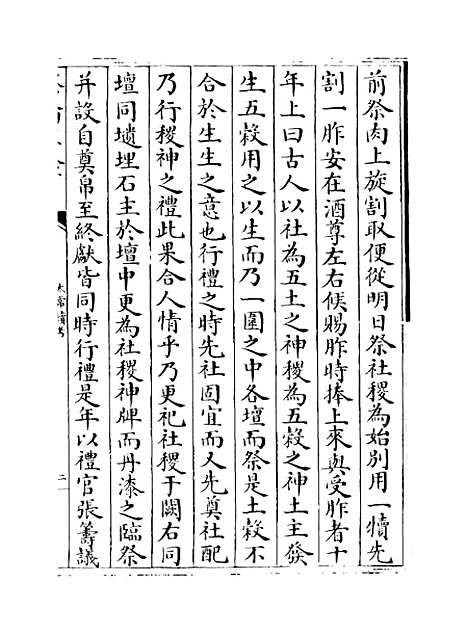 前祭肉上旋割取便從明日祭社稷為始别用一犢先
割一胙安在酒尊左右候賜胙時捧上來與受胙者十
年上曰古人以社為五土之神稷為五穀之神土主發
生五穀用之以生而乃一圍之中各壇而祭是土穀不
合於生生之意也行禮之時先社固宜而又先奠社配
乃行稷神之禮此果合人情乎乃更祀社稷于闕右同
壇同壝埋石主於壇中更為社稷神牌而丹漆之臨祭
并設自奠帛至終獻皆同時行禮是年以禮官張籌議
太常續考
二